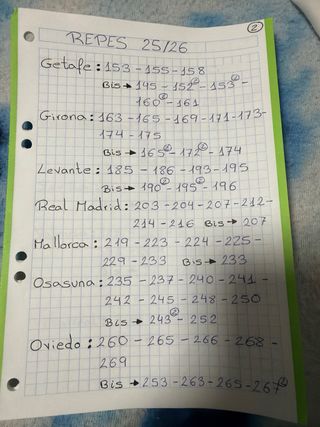 ②
REPES 25/26
Getafe: 153-155-158
Bis → 145-152②-153②-
160②-161
Girona: 163-165-169-171-173-
174-175
Bis → 165②-172②-174
Levante: 185-186-193-195
Bis → 190②-195②-196
Real Madrid: 203-204-207-212-
214-216 Bis → 207
Mallorca: 219-223-224-225-
229-233 Bis → 233
Osasuna: 235-237-240-241-
242-245-248-250
Bis → 243②-252
Oviedo: 260-265-266-268-
269
Bis → 253-263-265-267②